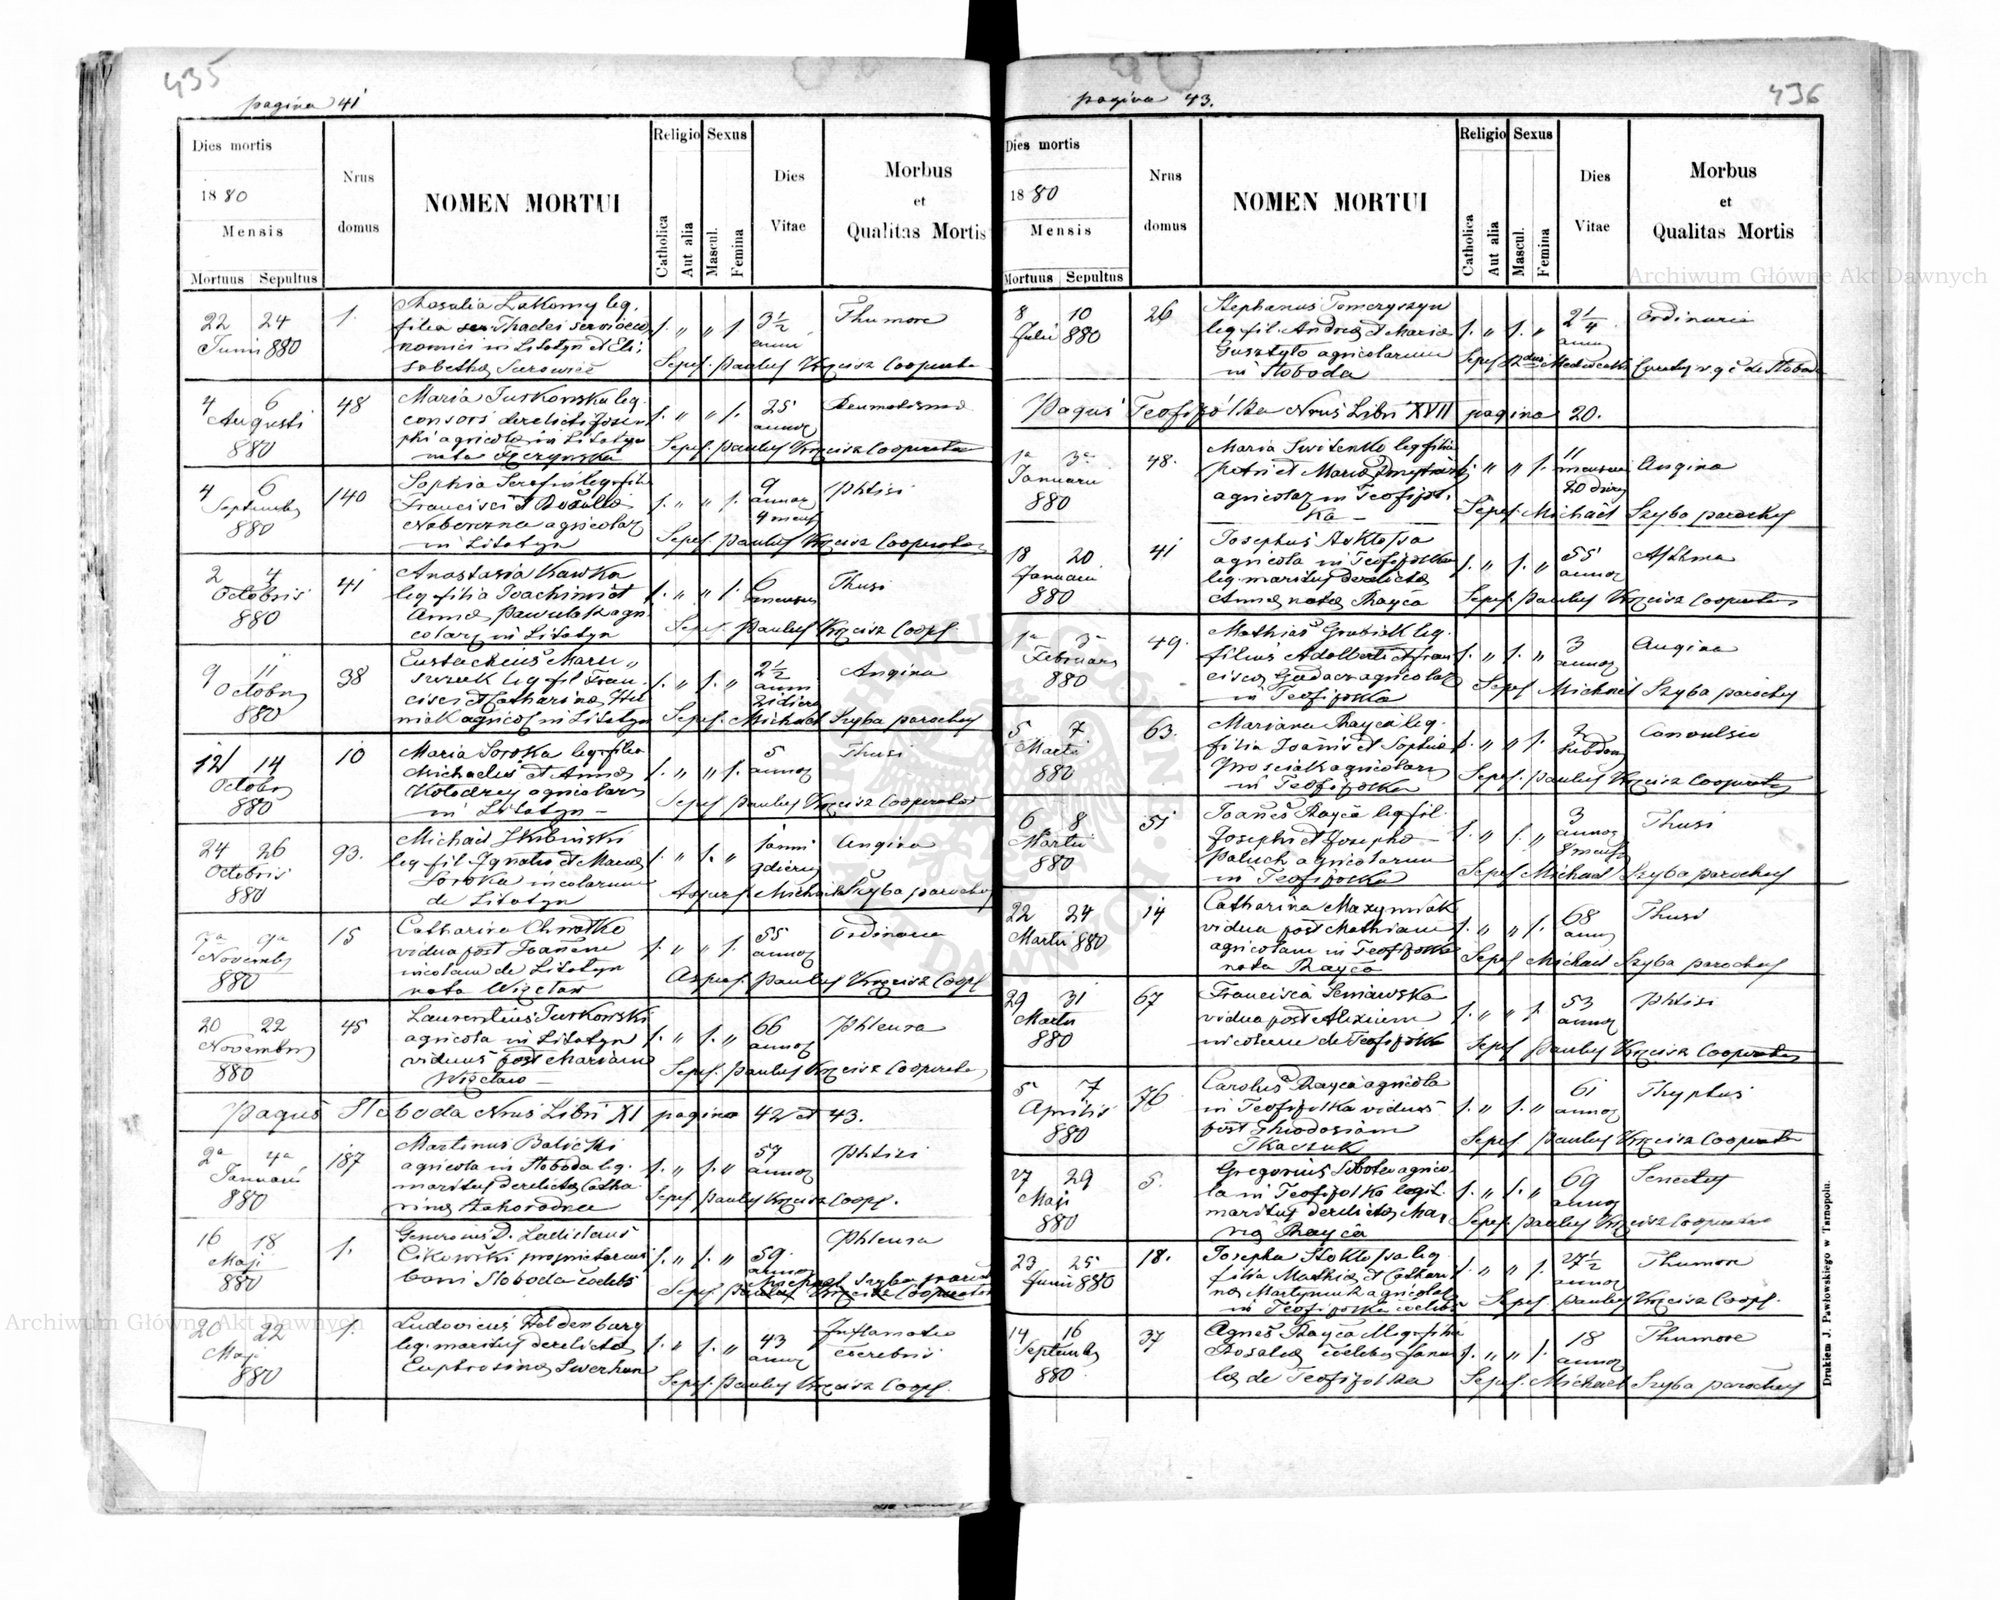 435
pagina 41
Dies mortis
1880
Mensis
Mortuus Sepultus
Nrus
domus
NOMEN MORTUI
Religio
Catholica
Aut alia
Sexus
Mascul.
Femina
Dies
Vitae
Morbus
et
Qualitas Mortis
22 24
Junii 880
1.
Rosalia Lakomy leg.
filia
nomici in Litotyn et Eli
sabethæ Surowiec
1. " " 1.
3½
anni
Thumore
Sepef. Paulus Krzcisz Cooperator
4 6
Augusti
880
48
Maria Turkowska leg.
consors derelicti Jose
phi agricolæ in Litotyn
nata
1. " " 1.
25
annor
Sepef. Paulus Krzcisz Cooperator
4 6
Septembr
880
140
Sophia Serafin leg. filia
Francisci et Rosaliæ
Naborozna agricolar
in Litotyn
1. " " 1.
9
annor
4 mens
Phtisi
Sepef. Paulus Krzcisz Cooperator
2 4
Octobris
880
41
Anastasia Kawka
leg. filia Joachimi et
Annæ Pawulak agri
colar in Litotyn
1. " " 1.
6
mensium
Thusi
Sepef. Paulus Krzcisz Coopf
9 11
Octobr
880
38
Eustachius Marci
leg. fil. Fran
cisci et Catharinæ
agricol in Litotyn
1. " 1. "
2½
anni
Angina
Sepef. Michael Szyba parochus
12 14
Octobr
880
10
Maria Soroka leg. filia
Michaelis et Annæ
Kolodrey agricolar
in Litotyn
1. " " 1.
5
annor
Thusi
Sepef. Paulus Krzcisz Cooperator
24 26
Octobris
880
93.
Michael Skibinski
leg. fil. Ignatii et Mariæ
Soroka incolarum
de Litotyn
1. " 1. "
1 anni
9 dierum
Angina
Michael Szyba parochus
7a 9a
Novembr
880
15
Catharina Chmatko
vidua post Joannem
incolam de Litotyn
nata Więcław
1. " " 1.
55
annor
Ordinaria
Paulus Krzcisz Coopf
20 22
Novembr
880
45
Laurentius Turkowski
agricola in Litotyn
viduus post Mariam
Więcław
1. " 1. "
66
annor
Phleura
Sepef. Paulus Krzcisz Cooperator
Pagus Sloboda Nrus Libri XI pagina 42 et 43.
2a 4a
Januarii
880
187
Martinus Balicki
agricola in Sloboda leg.
maritus derelictæ Catha
rinæ Zahorodna
1. " 1. "
57
annor
Phtisi
Sepef. Paulus Krzcisz Coopf.
16 18
Maji
880
1.
Generosus D. Ladislaus
Cikowski proprietarius
boni Sloboda coelebs
1. " 1. "
59.
annor
Phleura
Sepef. Michael Szyba paroch
Paulus Krzcisz Cooperator
20 22
Maji
880
1.
Ludovicus Heldenburg
leg. maritus derelictæ
Euphrosinæ Swerhun
1. " 1. "
43
annor
Inflamatio
cerebri
Sepef. Paulus Krzcisz Coopf.
436
pagina 43.
Dies mortis
1880
Mensis
Mortuus Sepultus
Nrus
domus
NOMEN MORTUI
Religio
Catholica
Aut alia
Sexus
Mascul.
Femina
Dies
Vitae
Morbus
et
Qualitas Mortis
8 10
Julii 880
26
Stephanus Tomczyszyn
leg. fil. Andreæ et Mariæ
Gusztyło agricolarum
in Sloboda
1. " 1. "
2¼
anni
Ordinaria
Pagus Teofipolka Nrus Libri XVII pagina 20.
1a 3a
Januarii
880
48.
Maria Switenko leg. filia
Petri et Mariæ
agricolar in Teofipol
ka
1. " " 1.
11
mensium
20 dierum
Angina
Sepef. Michael Szyba parochus
18 20
Januarii
880
41
Josephus Stoklossa
agricola in Teofipolka
leg. maritus derelictæ
Annæ natæ Rayca
1. " 1. "
55
annor
Asthma
Sepef. Paulus Krzcisz Cooperator
1a 3a
Februarii
880
49.
Mathias Grabiak leg.
filius Adolberti et Fran
ciscæ Gadacz agricolar
in Teofipolka
1. " 1. "
3
annor
Angina
Sepef. Michael Szyba parochus
5 7
Martii
880
63.
Mariana Rayca leg.
filia Joannis et Sophiæ
Prosciak agricolarum
in Teofipolka
1. " " 1.
2
hebdom
Convulsio
Sepef. Paulus Krzcisz Cooperator
6 8
Martii
880
51
Joannes Rayca leg. fil.
Josephi et Josephæ
Paluch agricolarum
in Teofipolka
1. " 1. "
3
annor
8 mens
Thusi
Sepef. Michael Szyba parochus
22 24
Martii 880
14
Catharina Maxymiak
vidua post Mathiam
agricolam in Teofipolka
nata Rayca
1. " " 1.
68
annor
Thusi
Sepef. Michael Szyba parochus
29 31
Martii
880
67
Francisca Seniawska
vidua post Alexium
incolam de Teofipolka
1. " " 1.
53
annor
Phtisi
Sepef. Paulus Krzcisz Cooperator
5 7
Aprilis
880
76
Carolus Rayca agricola
in Teofipolka viduus
post Theodosiam
Tkaczuk
1. " 1. "
61
annor
Thyphus
Sepef. Paulus Krzcisz Cooperator
27 29
Maji
880
5.
Gregorius Sobotea agrico
la in Teofipolka legit.
maritus derelictæ Ma
riæ Rayca
1. " 1. "
69
annor
Senectus
Sepef. Paulus Krzcisz Cooperator
23 25
Junii 880
18.
Josepha Stoklossa leg.
filia Mathiæ et Cathari
næ Martyniuk agricolar
in Teofipolka coelibs
1. " " 1.
27½
annor
Thumore
Sepef. Paulus Krzcisz Coopf.
14 16
Septembr
880
37
Agnes Rayca illeg. filia
Rosaliæ coelibis famu
læ de Teofipolka
1. " " 1.
18
annor
Thumore
Sepef. Michael Szyba parochus
Drukiem J. Pawłowskiego w Tarnopolu.
Archiwum Główne Akt Dawnych
Archiwum Główne Akt Dawnych
ARCHIWUM GŁÓWNE AKT DAWNYCH